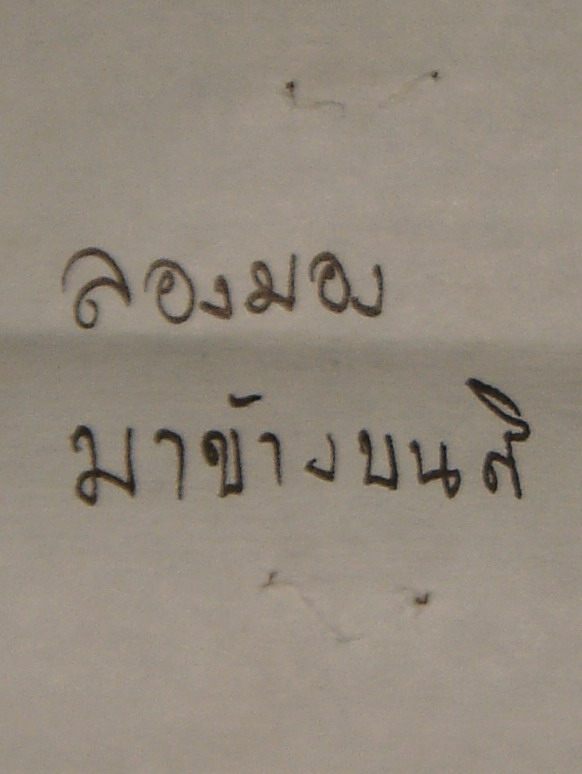 ลองมอง
มาข้างบนสิ